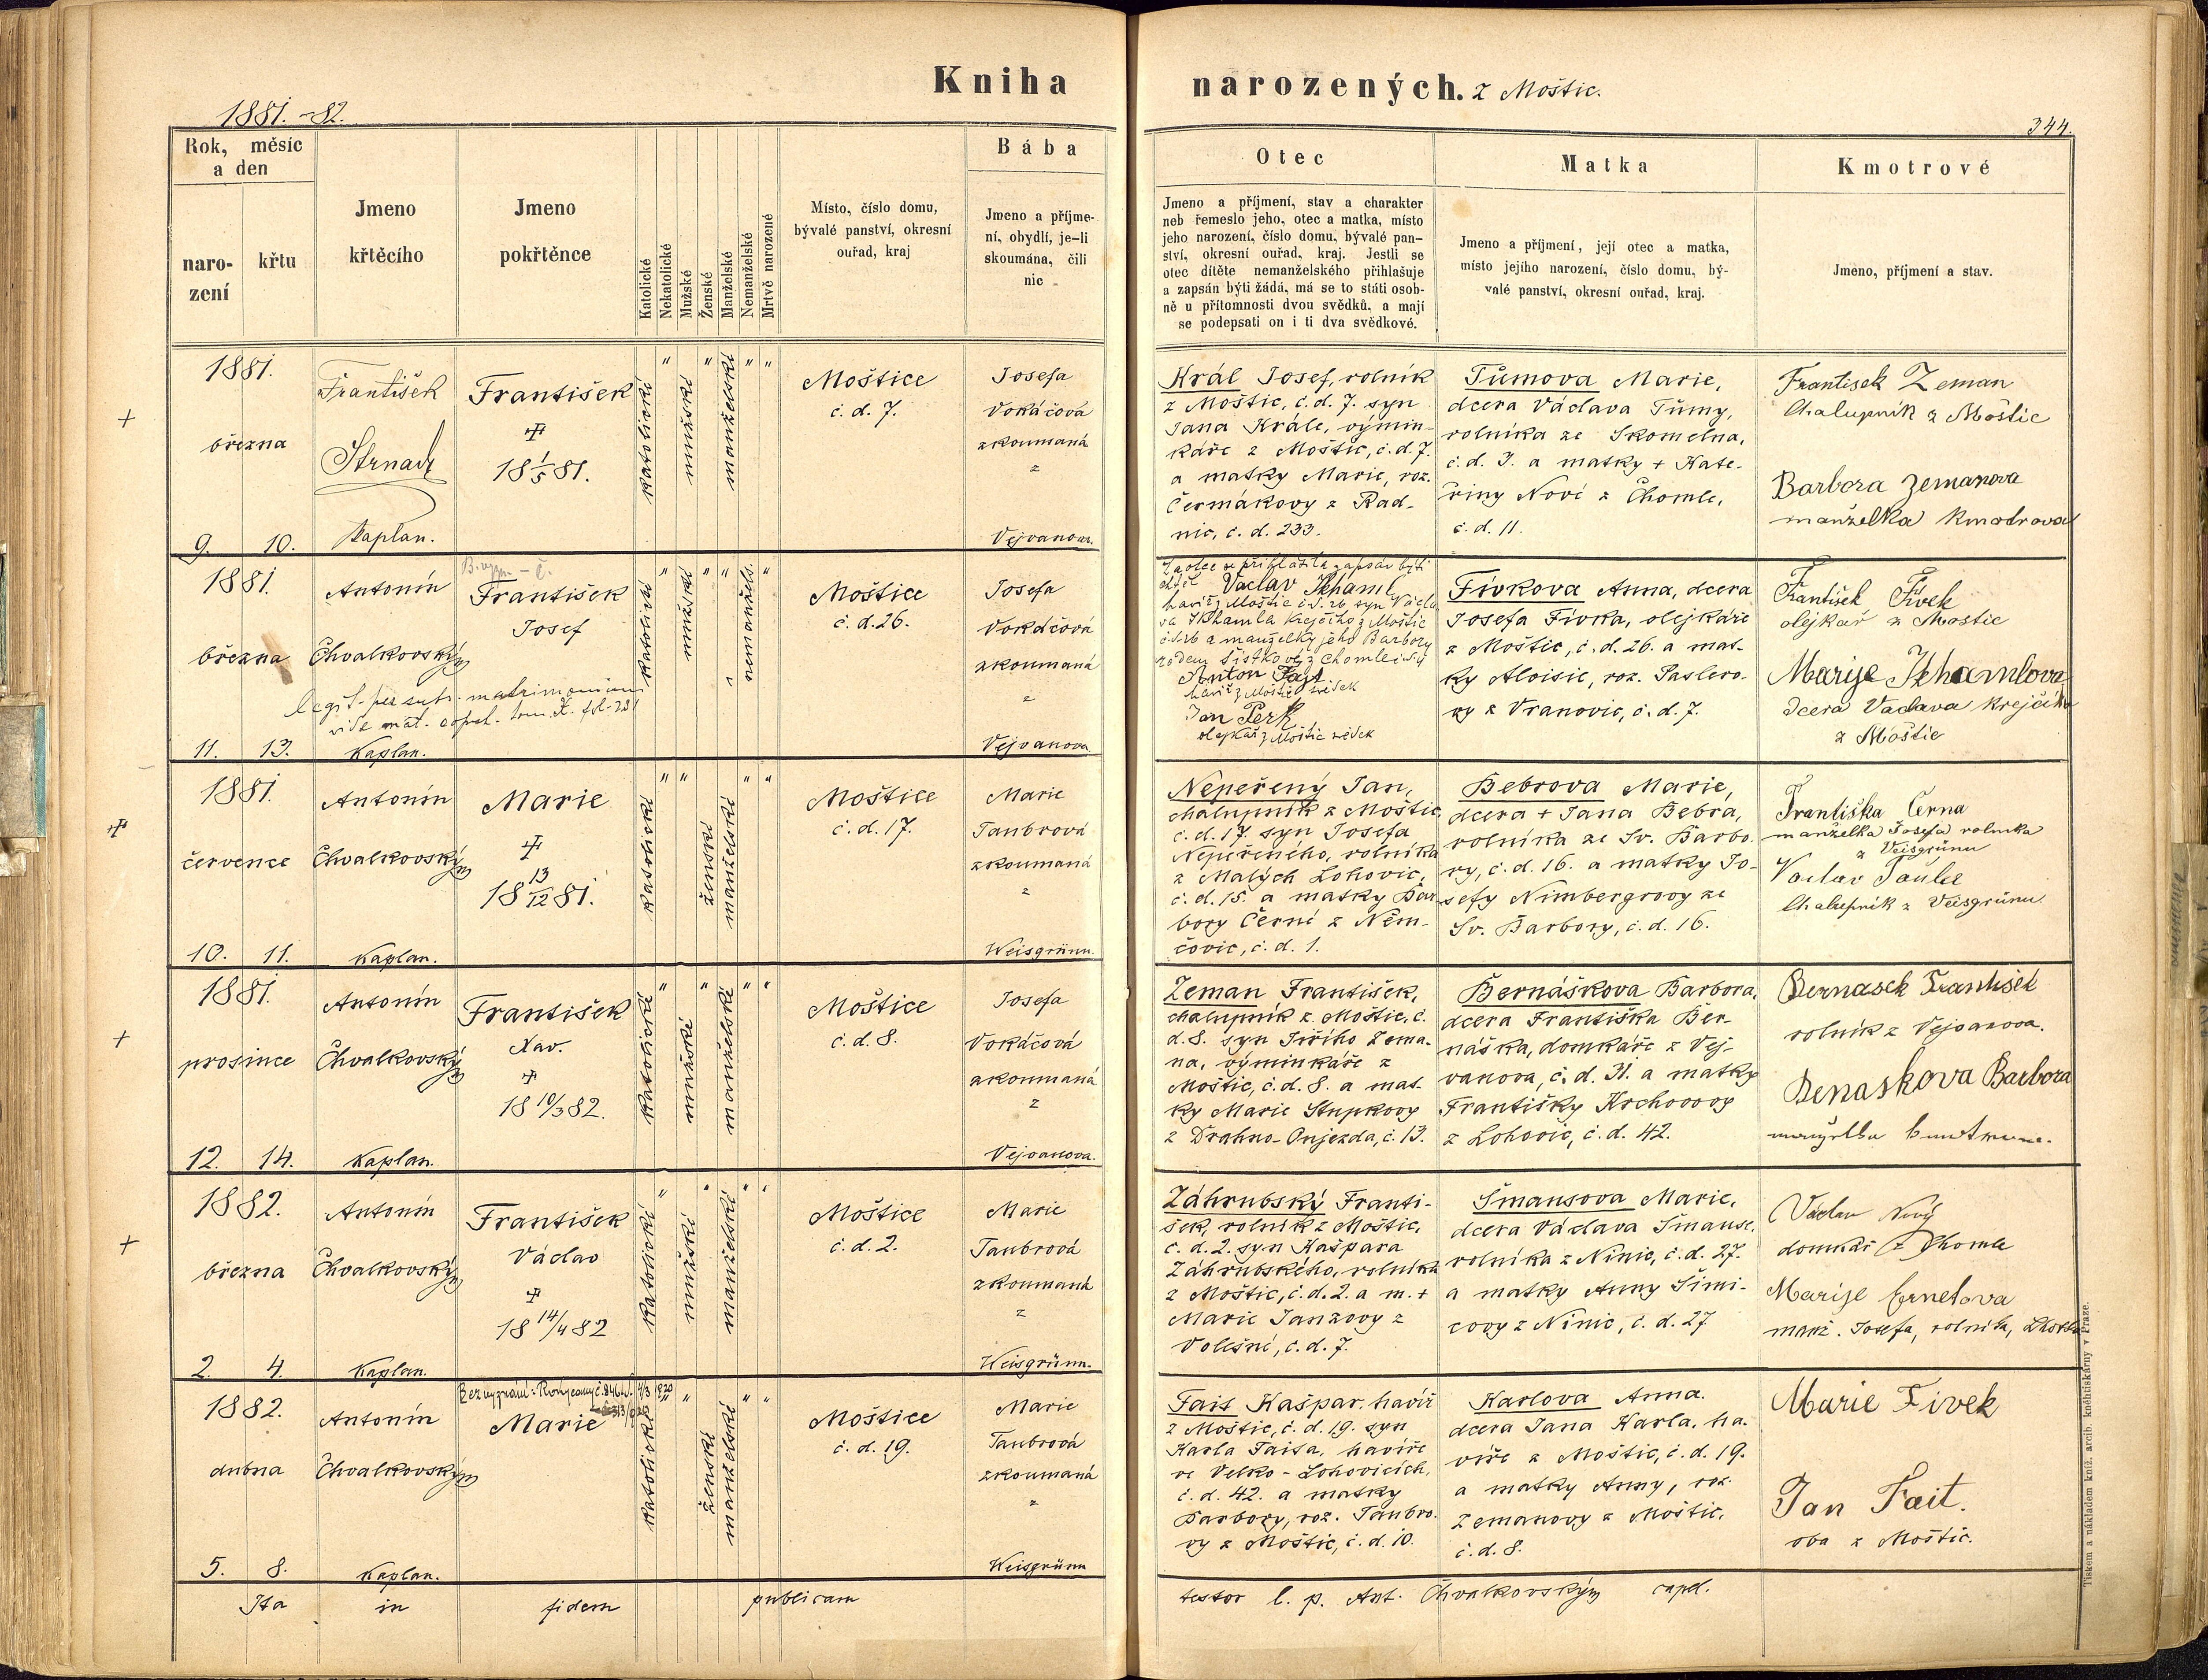 Kniha narozených. z Moštic.
1881.-82.
344.
Rok, měsíc
a den
naro-
zení
křtu
Jmeno
křtěcího
Jmeno
pokřtěnce
Katolické
Nekatolické
Mužské
Ženské
Manželské
Nemanželské
Mrtvě narozené
Místo, číslo domu,
bývalé panství, okresní
ouřad, kraj
Bába
Jmeno a příjme-
ní, obydlí, je-li
skoumána, čili
nic
Otec
Jmeno a příjmení, stav a charakter
neb řemeslo jeho, otec a matka, místo
jeho narození, číslo domu, bývalé pan-
ství, okresní ouřad, kraj. Jestli se
otec dítěte nemanželského přihlašuje
a zapsán býti žádá, má se to státi osob-
ně u přítomnosti dvou svědků, a mají
se podepsati on i ti dva svědkové.
Matka
Jmeno a příjmení, její otec a matka,
místo jejího narození, číslo domu, bý-
valé panství, okresní ouřad, kraj.
Kmotrové
Jmeno, příjmení a stav.
1881.
března
9. 10.
František
Strnad
Kaplan.
František
18 1/5 81.
katolické
mužské
manželské
Moštice
č. d. 7.
Josefa
Vokáčová
zkoumaná
z
Vejvanova.
Král Josef, rolník
z Moštic, č. d. 7. syn
Jana Krále, výmin-
káře z Moštic, č. d. 7.
a matky Marie, roz.
Čermákovy z Rad-
nic, č. d. 233.
Tůmova Marie,
dcera Václava Tůmy,
rolníka ze Skomelna,
č. d. 3. a matky + Kate-
řiny Nové z Chomle,
č. d. 11.
František Zeman
Chalupník z Moštic
Barbora Zemanova
manželka kmotrova
1881.
března
11. 13.
Antonín
Chvalkovský
Kaplan.
František
Josef
legit. per subs. matrimonium
vide mat. copul. tom. X. fol. 231
katolické
mužské
nemanžels.
Moštice
č. d. 26.
Josefa
Vokáčová
zkoumaná
z
Vejvanova
Za otce se přihlásil a zapsán býti
chtěl Vaclav Skhaml
havíř z Moštic č. d. 26 syn Václa-
va Skhamla krejčího z Moštic
č. d. 26 a manželky jeho Barbory
Anton Fajt
havíř z Moštic svědek
Jan Perk
olejkař z Moštic svědek
Fívkova Anna, dcera
Josefa Fívka, olejkáře
z Moštic, č. d. 26. a mat-
ky Aloisie, roz. Paslero-
vy z Vranovic, č. d. 7.
František Fívek
olejkař z Moštic
Marije Skhamlova
dcera Vaclava krejčího
z Moštic
1881.
července
10. 11.
Antonín
Chvalkovský
Kaplan.
Marie
18 13/12 81.
katolické
ženské
manželské
Moštice
č. d. 17.
Marie
Taubrová
zkoumaná
z
Weisgrünn.
Nepeřený Jan,
chalupník z Moštic,
č. d. 17. syn Josefa
Nepeřeného, rolníka
z Malých Lohovic,
č. d. 15. a matky Bar-
bory Černé z Něm-
čovic, č. d. 1.
Bebrova Marie,
dcera + Jana Bebra,
rolníka ze Sv. Barbo-
ry, č. d. 16. a matky Jo-
sefy Nimbergrovy ze
Sv. Barbory, č. d. 16.
Františka Černa
manželka Josefa rolníka
z Veisgrünu
Vaclav Taubr
Chalupník z Veisgrünu
1881.
prosince
12. 14.
Antonín
Chvalkovský
Kaplan.
František
Xav.
18 10/3 82.
katolické
mužské
manželské
Moštice
č. d. 8.
Josefa
Vokáčová
zkoumaná
z
Vejvanova.
Zeman František,
chalupník z Moštic, č.
d. 8. syn Jiřího Zema-
na, výminkáře z
Moštic, č. d. 8. a mat-
ky Marie Stupkovy
z Drahno-Oujezda, č. 13.
Bernáškova Barbora,
dcera Františka Ber-
náška, domkáře z Vej-
vanova, č. d. 31. a matky
Františky Krchovovy
z Lohovic, č. d. 42.
Bernasek František
rolník z Vejvanova.
Benaskova Barbora
manželka kmotrova.
1882.
března
2. 4.
Antonín
Chvalkovský
Kaplan.
František
Václav
18 14/4 82
katolické
mužské
manželské
Moštice
č. d. 2.
Marie
Taubrová
zkoumaná
z
Weisgrünn.
Záhrubský Franti-
šek, rolník z Moštic,
č. d. 2. syn Kašpara
Záhrubského, rolníka
z Moštic, č. d. 2. a m. +
Marie Janzovy z
Volešné, č. d. 7.
Šmausova Marie,
dcera Václava Šmause,
rolníka z Ninic, č. d. 27.
a matky Anny Šimi-
covy z Ninic, č. d. 27
Václav Nový
domkář z Chomle
Marije Ernetova
manž. Josefa, rolníka,
1882.
dubna
5. 8.
Antonín
Chvalkovský
Kaplan.
Bez vyznání: Rokycany
Marie
katolické
ženské
manželské
Moštice
č. d. 19.
Marie
Taubrová
zkoumaná
z
Weisgrünn
Fait Kašpar, havíř
z Moštic, č. d. 19. syn
Karla Faita, havíře
ve Velko-Lohovicích,
č. d. 42. a matky
Barbory, roz. Taubro-
vy z Moštic, č. d. 10.
Karlova Anna.
dcera Jana Karla, ha-
víře z Moštic, č. d. 19.
a matky Anny, roz.
Zemanovy z Moštic,
č. d. 8.
Marie Fivek
Jan Fait.
oba z Moštic.
Ita in fidem publicam testor l. p. Ant. Chvalkovský capel.
Tiskem a nákladem kníž. arcib. kněhtiskárny v Praze.